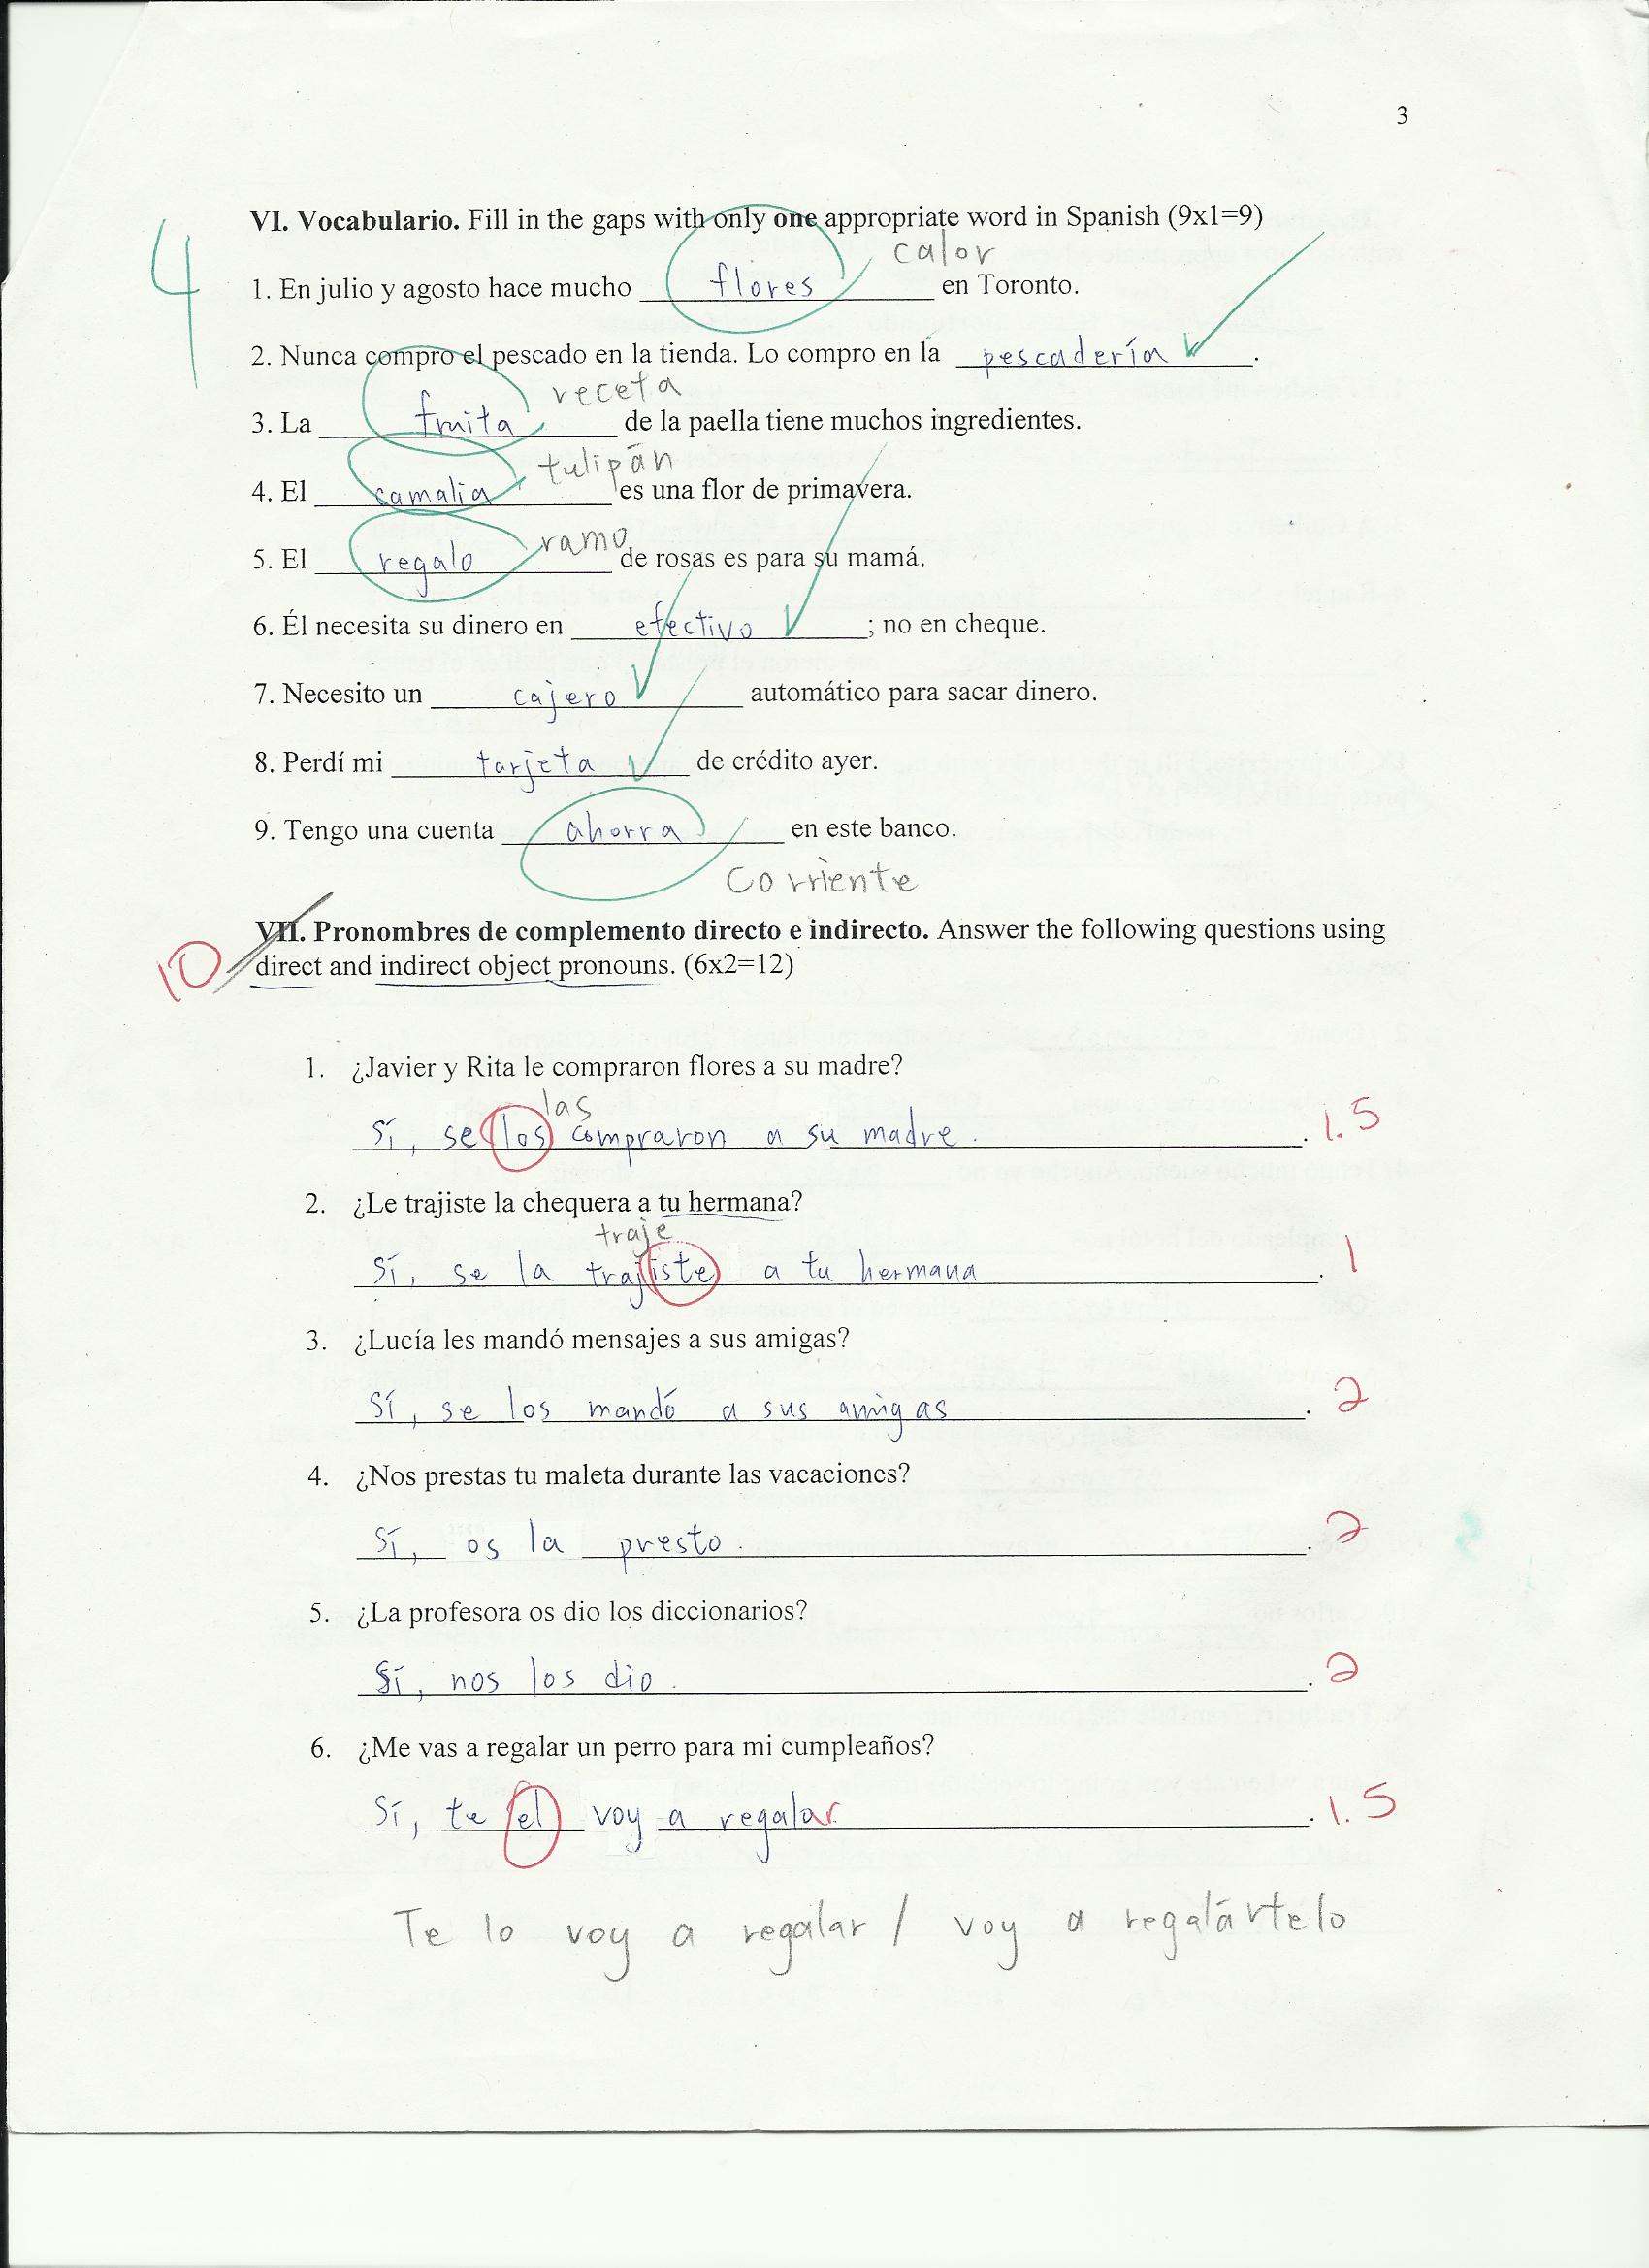 3
4
VI. Vocabulario. Fill in the gaps with only one appropriate word in Spanish (9x1=9)
calor
1. En julio y agosto hace mucho flores en Toronto.
2. Nunca compro el pescado en la tienda. Lo compro en la pescadería.
receta
3. La fruita de la paella tiene muchos ingredientes.
tulipán
4. El camalia es una flor de primavera.
ramo
5. El regalo de rosas es para su mamá.
6. Él necesita su dinero en efectivo; no en cheque.
7. Necesito un cajero automático para sacar dinero.
8. Perdí mi tarjeta de crédito ayer.
9. Tengo una cuenta ahorra en este banco.
corriente
10
VII. Pronombres de complemento directo e indirecto. Answer the following questions using
direct and indirect object pronouns. (6x2=12)
1. ¿Javier y Rita le compraron flores a su madre?
las
Sí, se los compraron a su madre. 1.5
2. ¿Le trajiste la chequera a tu hermana?
traje
Sí, se la trajiste a tu hermana. 1
3. ¿Lucía les mandó mensajes a sus amigas?
Sí, se los mandó a sus amigas. 2
4. ¿Nos prestas tu maleta durante las vacaciones?
Sí, os la presto. 2
5. ¿La profesora os dio los diccionarios?
Sí, nos los dio. 2
6. ¿Me vas a regalar un perro para mi cumpleaños?
Sí, te el voy a regalar. 1.5
Te lo voy a regalar / voy a regalártelo